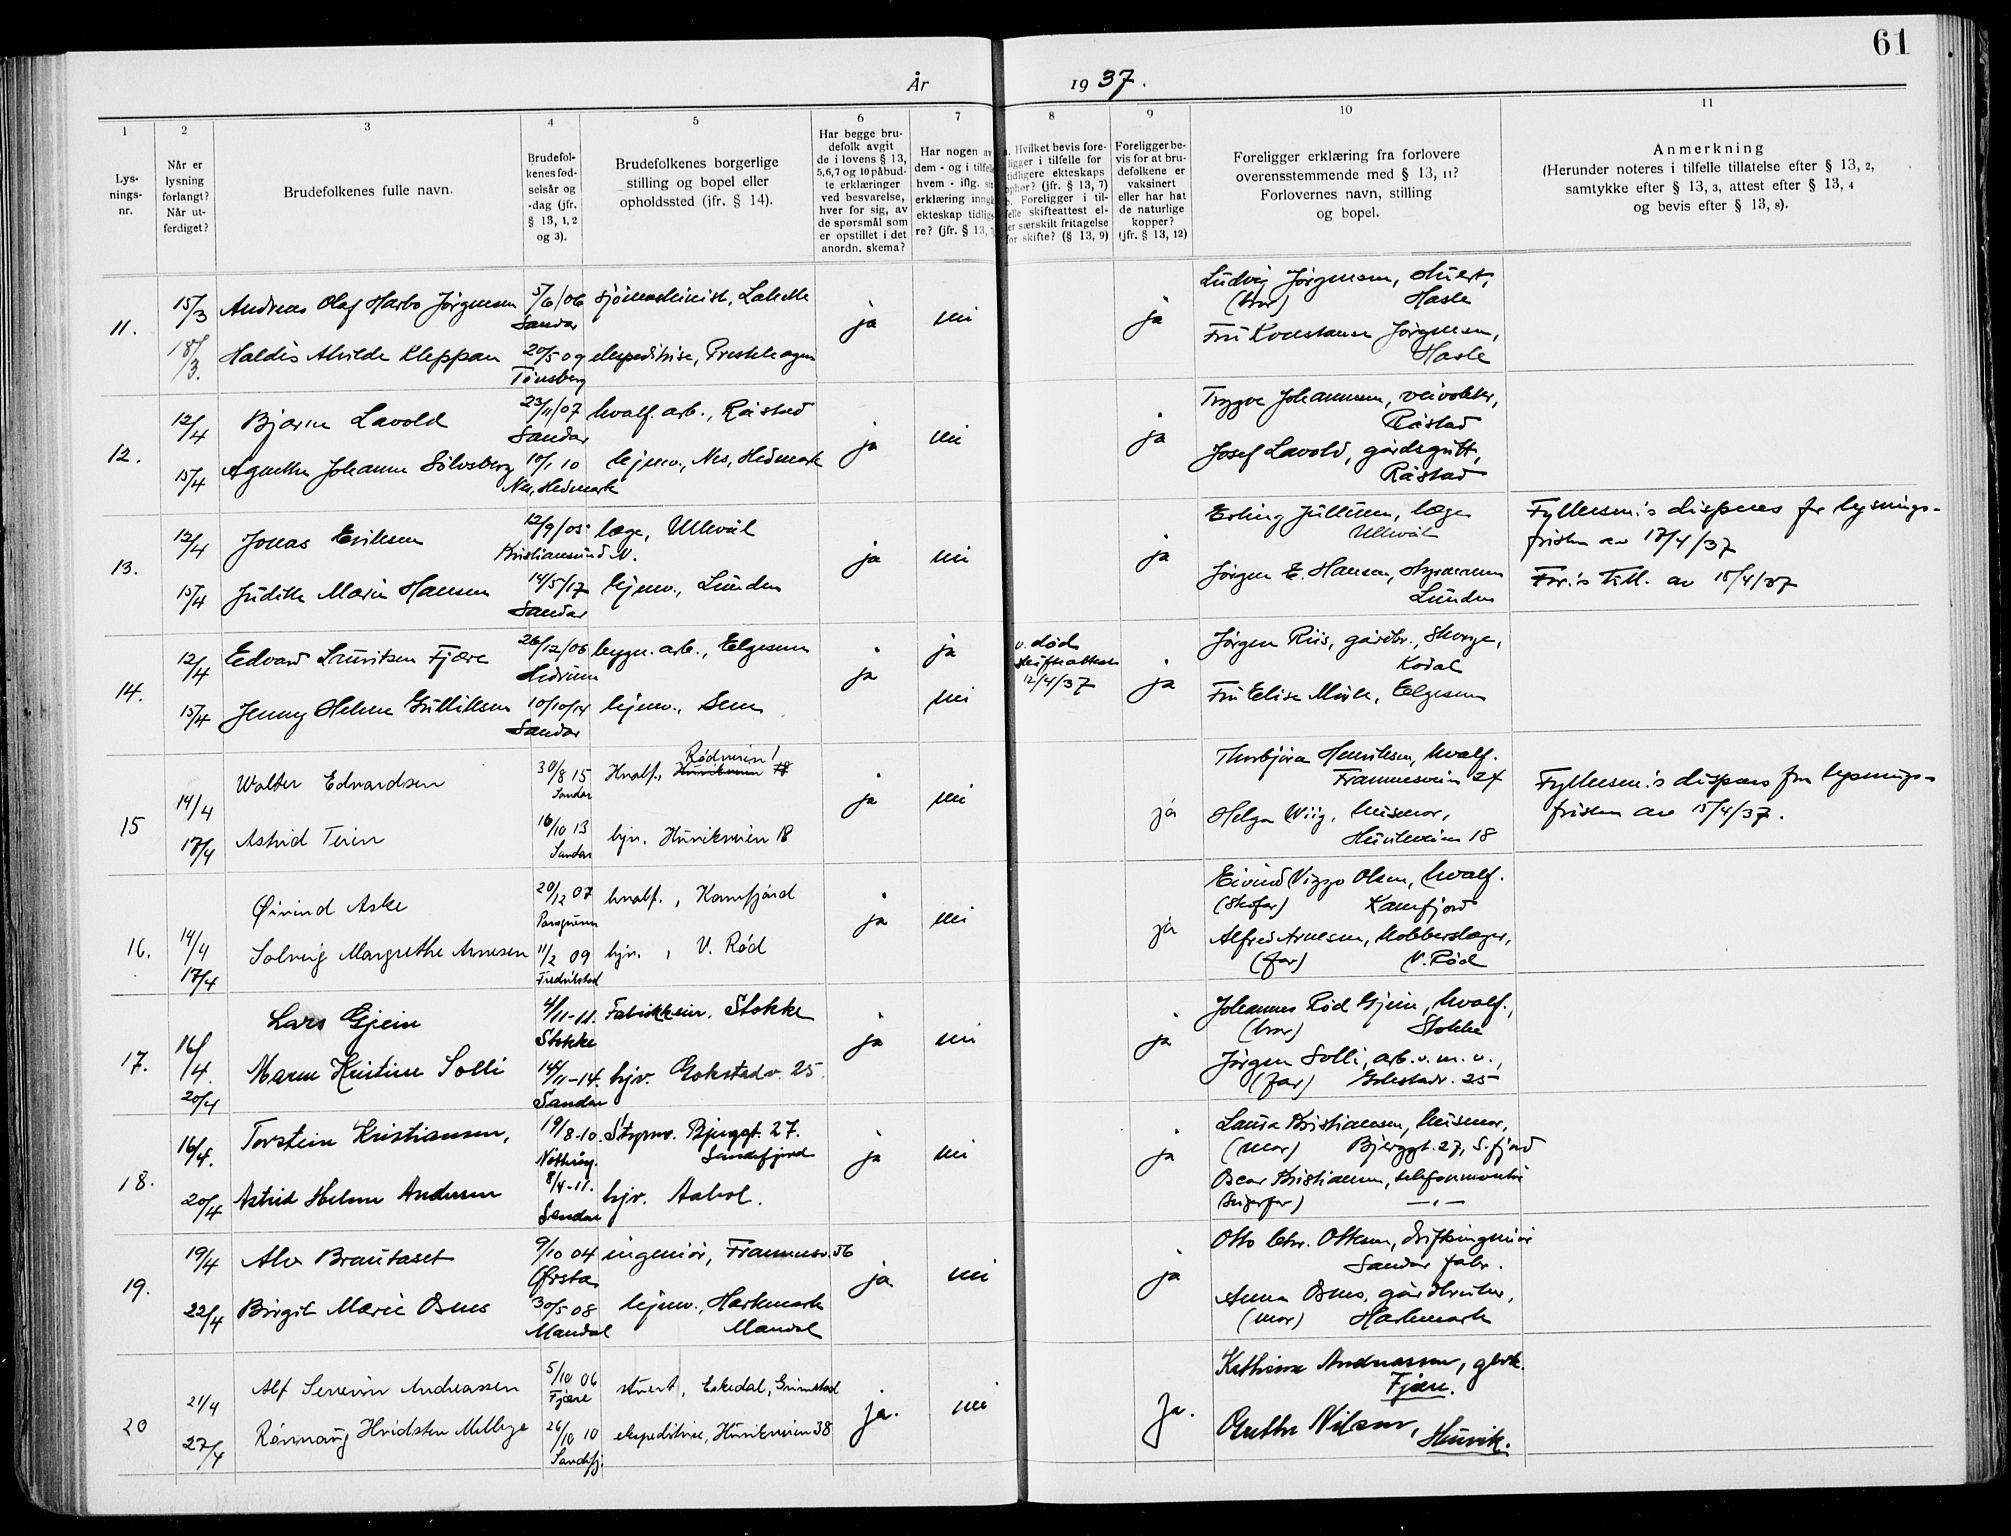 61
År 1937.
1
2
3
4
5
6
7
8
9
10
11
Lys-
nings-
nr.
Når er
lysning
forlangt?
Når ut-
ferdiget?
Brudefolkenes fulle navn.
Brudefol-
kenes fød-
selsår og
-dag (jfr.
§ 13, 1, 2
og 3).
Brudefolkenes borgerlige
stilling og bopel eller
opholdssted (jfr. § 14).
Har begge bru-
defolk avgit
de i lovens § 13,
5,6,7 og 10 påbud-
te erklæringer
ved besvarelse,
hver for sig, av
de spørsmål som
er opstillet i det
anordn. skema?
Har nogen av
dem - og i tilfelle
hvem - iflg. sin
erklæring inngå
ekteskap tidlige-
re? (jfr. § 13,
Hvilket bevis fore-
ligger i tilfelle for
tidligere ekteskaps
ophør? (jfr. § 13, 7)
b. Foreligger i til-
felle skifteattest el-
ler særskilt fritagelse
for skifte? (§ 13, 9)
Foreligger be-
vis for at bru-
defolkene er
vaksinert
eller har hat
de naturlige
kopper?
(jfr. § 13, 12)
Foreligger erklæring fra forlovere
overensstemmende med § 13, 11?
Forlovernes navn, stilling
og bopel.
Anmerkning
(Herunder noteres i tilfelle tillatelse efter § 13, 2,
samtykke efter § 13, 3, attest efter § 13, 4
og bevis efter § 13, 8).
11.
15/3
18/3.
Andreas Olaf Harbo Jørgensen
5/6/06
Sandar
ja
nei
ja
Ludvig Jørgensen, stuert,
(bror) Hasle
Haldis Alvilde Kleppan
20/5 09
Tønsberg
ekspeditrise, Prestehagen
Fru Konstanse Jørgensen,
Hasle
12.
12/4
15/4
Bjarne Lavold
23/11/07
Sandar
hvalf. arb., Råstad
ja
nei
ja
Trygve Johannsen, veivokter,
Råstad
Agnethe Johanne Sølvsberg
10/1 10
Nes, Hedmark
hjemv., Nes, Hedmark
Josef Lavold, gårdsgutt,
Råstad
13.
12/4
15/4
Jonas Eriksen
12/9/05
Kristiansund N.
læge, Ullevål
ja
nei
ja
Erling Jullum, læge
Ullevål
Fylkesm.'s dispens for lysnings-
fristen av 17/4/37
Judith Marie Hansen
14/5/17
Sandar
hjemv., Lunden
Jørgen E. Hansen, styrmann
Lunden
For.'s till. av 15/4/37
14.
12/4
15/4
Edvard Lauritsen Fjære
26/12/06
Hedrum
bygn. arb., Elgesem
ja
ja
v. død
skifteattest
12/4/37
ja
Jørgen Riis, gårdbr., Skorge,
Kodal
Jenny Helene Gulliksen
10/10/14
Sandar
hjemv., Sem
nei
Fru Elise Mule, Elgesem
15
14/4
17/4
Walter Edvardsen
30/8 15
Sandar
Hvalf., Rødveien 1
ja
nei
ja
Thorbjørn Henriksen, hvalf.
Framnesveien 24
Fylkesm.'s dispens fra lysnings-
fristen av 15/4/37.
Astrid Teien
16/10 13
Sandar
hjv. Hunikveien 18
Helga Wiig, husmor,
Hunikveien 18
16.
14/4
17/4
Øivind Aske
20/12 07
Porsgrunn
hvalf., Kamfjord
ja
nei
ja
Eivind Viggo Olsen, hvalf.
(skofar) Kamfjord
Solveig Margrethe Arnesen
11/2 09
Fredrikstad
hjv., V. Rød
Alfred Arnesen, kobberslager,
(far) V. Rød
17.
16/4.
20/4
Lars Gjein
4/11-11.
Stokke
Fabrikkeier. Stokke
ja
nei
ja
Johannes Rød Gjein, hvalf.,
(bror) Stokke
Maren Kristine Solli
14/11-14.
Sandar
hjv. Gokstadv. 25.
Jørgen Solli, arb. v. m. v.,
(far) Gokstadv. 25
18.
16/4.
20/4
Torstein Kristiansen,
19/8-10.
Nøtterøy.
Styrm. Bjerggt. 27.
Sandefjord
ja
nei
ja
Laura Kristiansen, husmor,
(mor) Bjerggt. 27, S.fjord
Astrid Helene Andersen
8/4-11.
Sandar
hjv. Aabol.
Oscar Kristiansen, telefonmontør
(svigerfar) —„—
19.
19/4
22/4
Alv Brautaset
9/10 04
Ørsta
ingeniør, Framnesv. 56
ja
nei
ja
Otto Chr. Ottesen, driftsingeniør
Sandar fabr.
Birgit Marie Osnes
30/5 08
Mandal
hjemv., Harkmark
Mandal
Anna Osnes, gårdbruker,
(mor) Harkmark
20
21/4
27/4
Alf Severin Andreassen
5/10 06
Fjære
stuert, Eskedal, Grimstad
ja.
nei
Ja.
Kathinne Andreassen, gbrk.
Fjære.
Rannaug Hvidsten Melbye
26/10 10
Sandefj.
ekspeditrise, Hunikveien 38
Grethe Nilsen, Hunik.